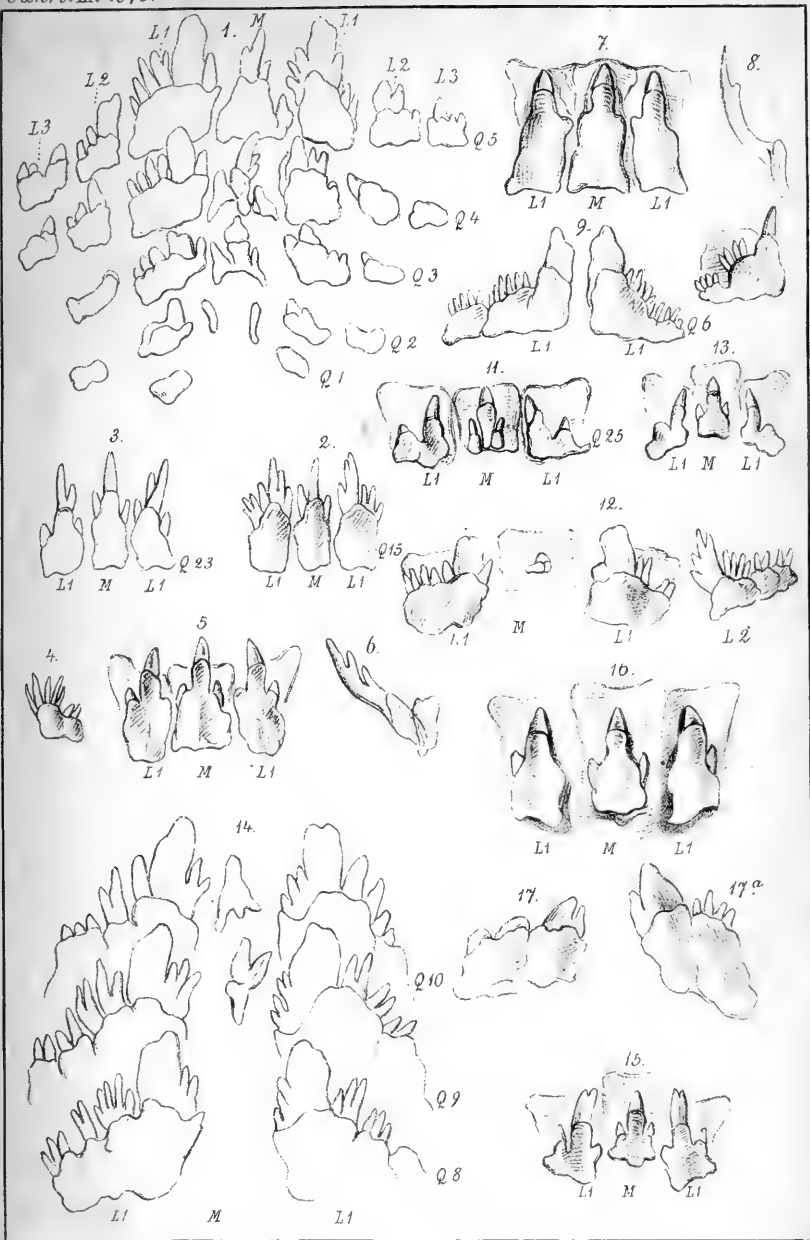 L1 1. M L1
L2 L2 L3
L3
Q5
Q4
Q3
Q2
Q1
7.
L1 M L1
8.
9.
Q6
L1 L1
11.
Q25
L1 M L1
13.
L1 M L1
3.
Q23
L1 M L1
2.
Q15
L1 M L1
12.
L1 M L1 L2
4.
5
L1 M L1
6.
16.
L1 M L1
14.
Q10
Q9
Q8
L1 M L1
17.
17.a
15.
L1 M L1